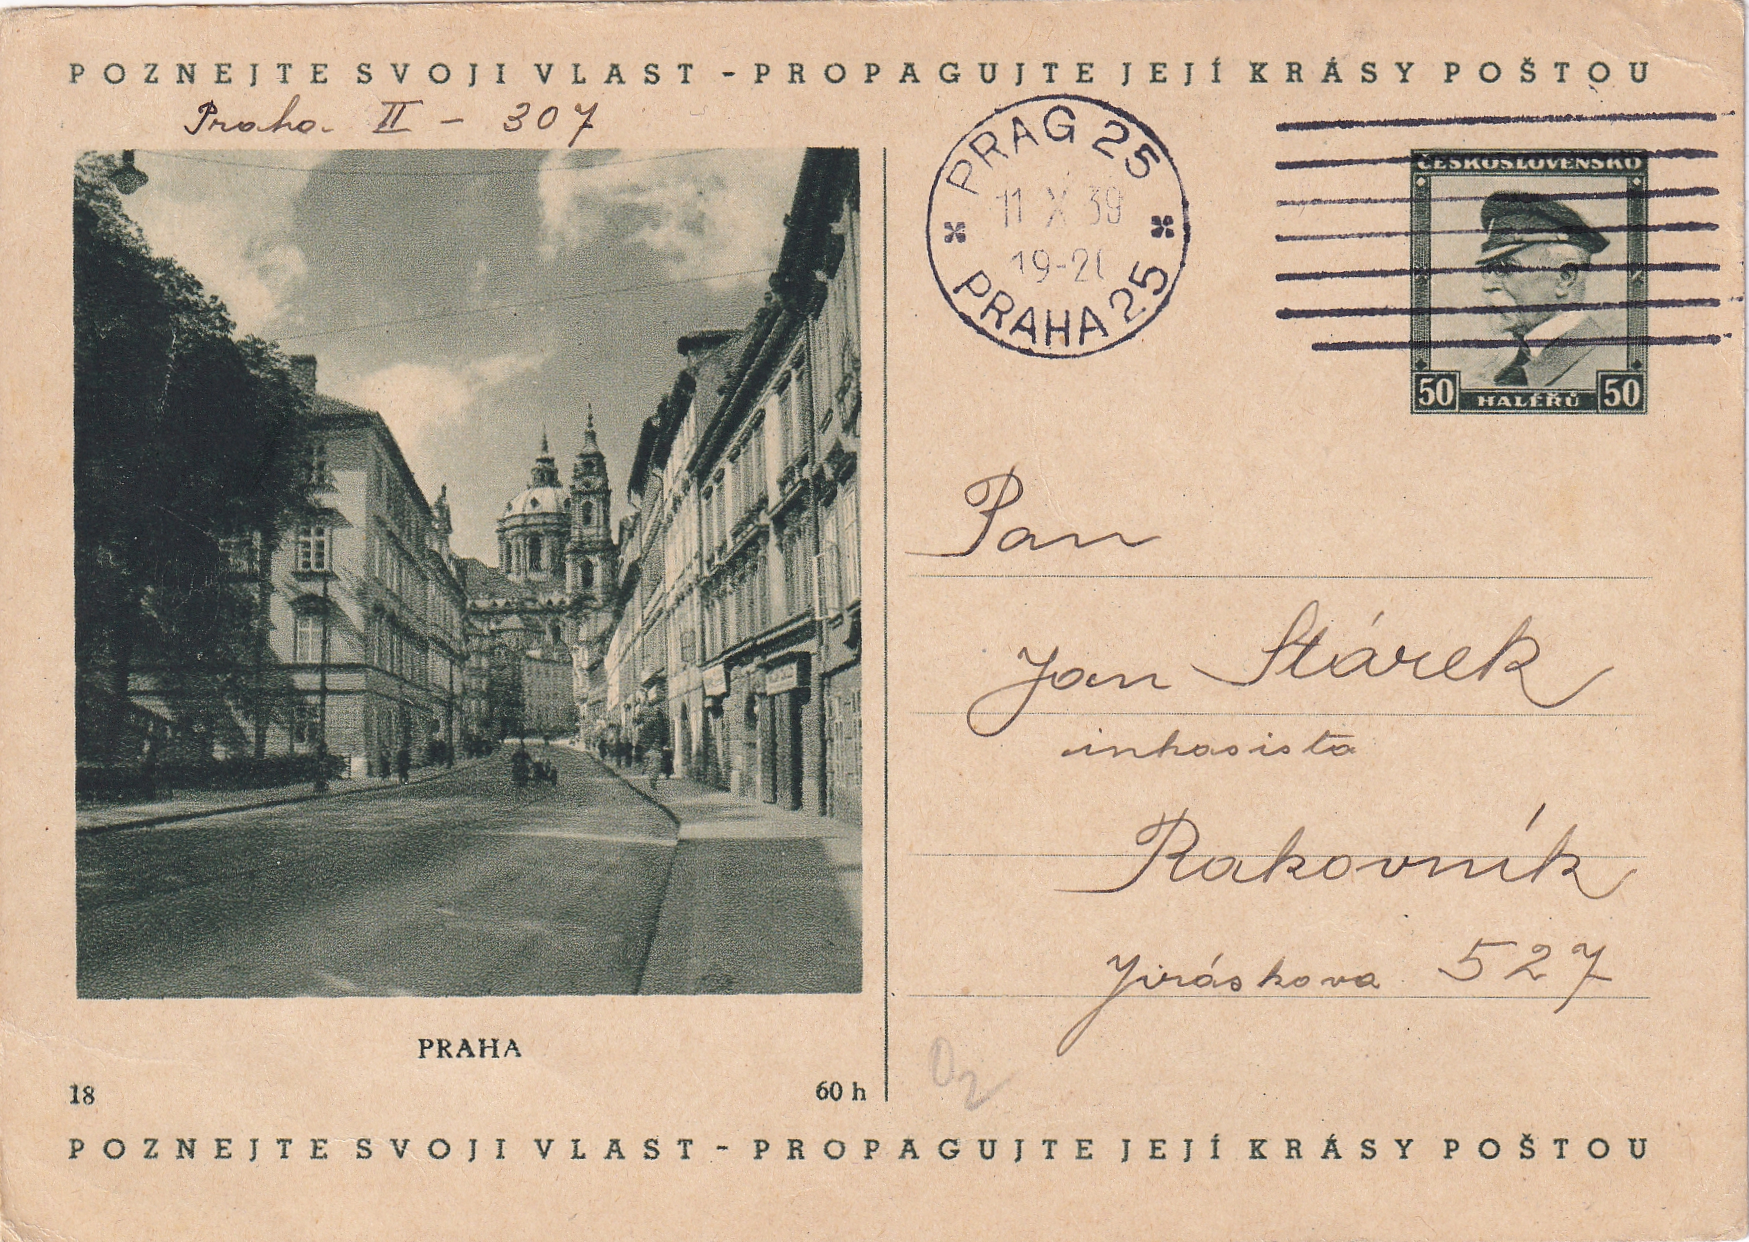 POZNEJTE SVOJI VLAST - PROPAGUJTE JEJÍ KRÁSY POŠTOU
Praha II - 307
PRAG 25
11 X 39
19-20
PRAHA 25
ČESKOSLOVENSKO
50 HALÉŘŮ 50
Pan
Jan Stárek
inkasista
Rakovník
Jiráskova 527
PRAHA
18
60 h
POZNEJTE SVOJI VLAST - PROPAGUJTE JEJÍ KRÁSY POŠTOU